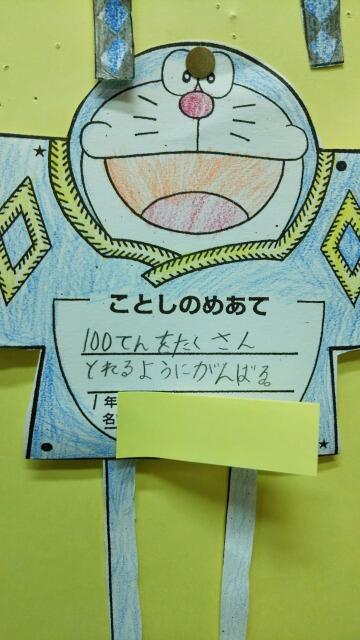 ことしのめあて
100てんをたくさん
とれるようにがんばる
1年
名